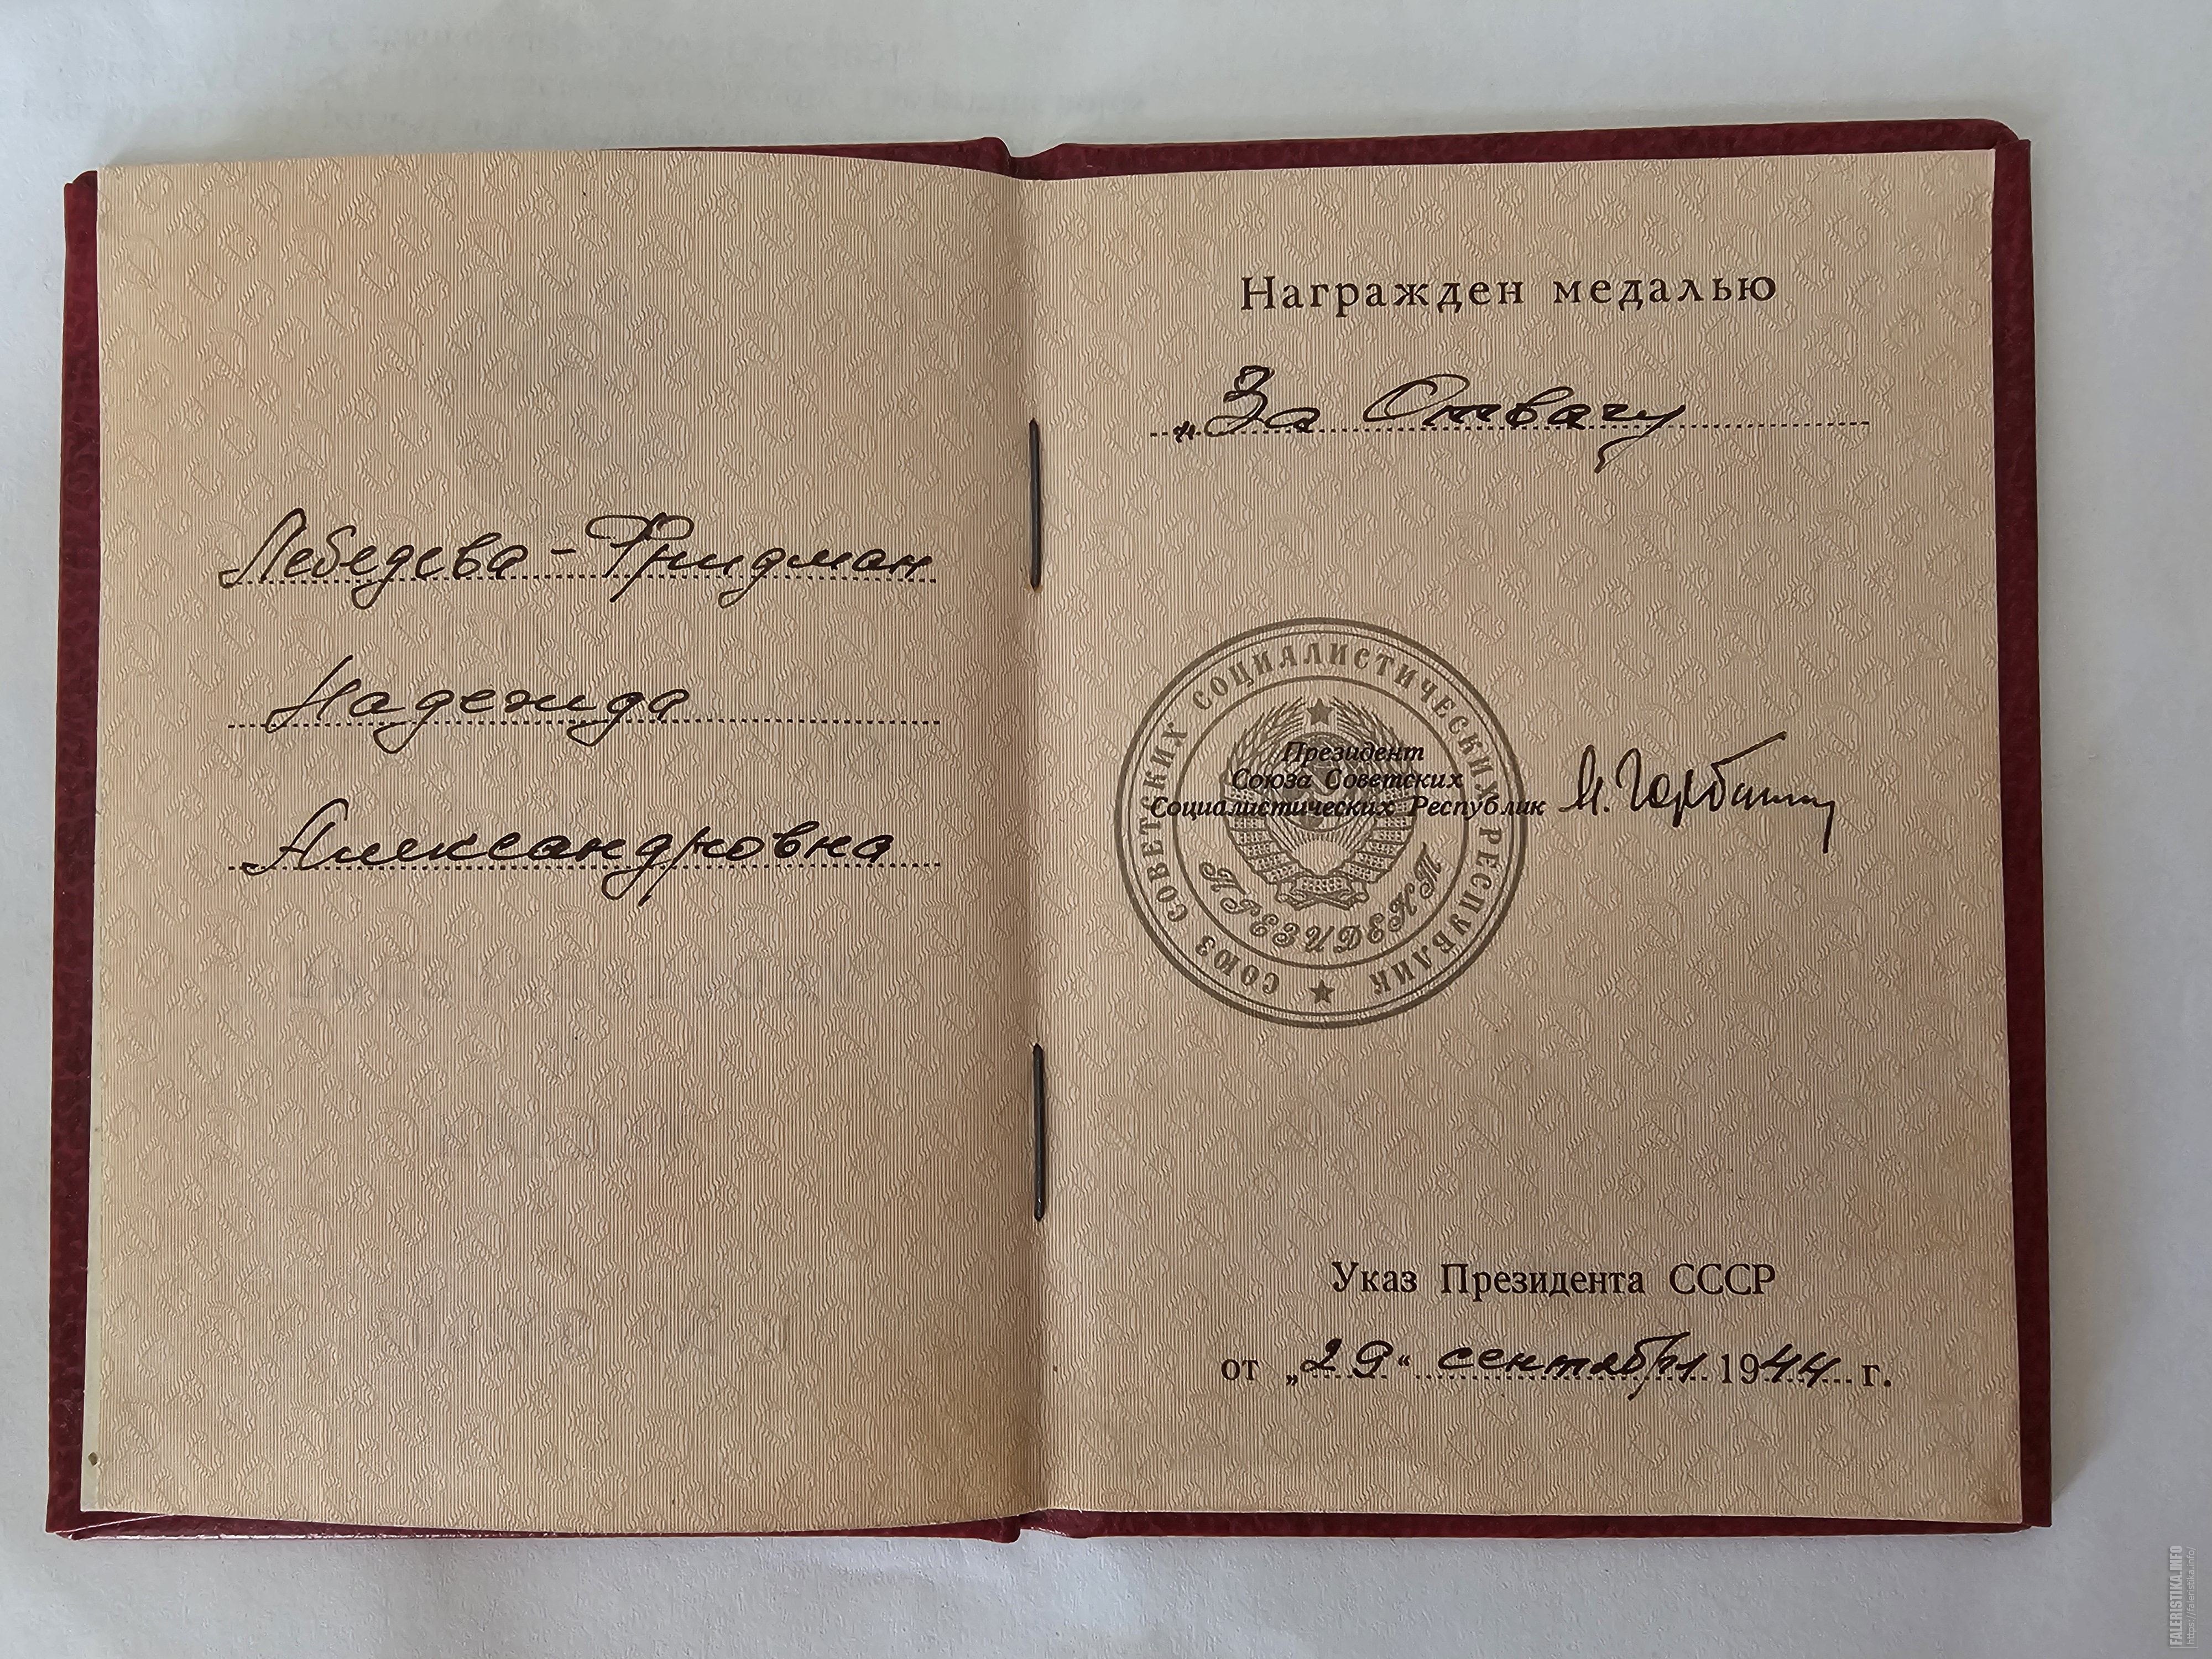 Лебедева-Фридман
Надежда
Александровна
Награжден медалью
„За Отвагу
СОЮЗ СОВЕТСКИХ СОЦИАЛИСТИЧЕСКИХ РЕСПУБЛИК
ПРЕЗИДЕНТ
Президент
Союза Советских
Социалистических Республик
М. Горбачев
Указ Президента СССР
от „29“ сентября 1944 г.
FALERISTIKA.INFO
https://faleristika.info/